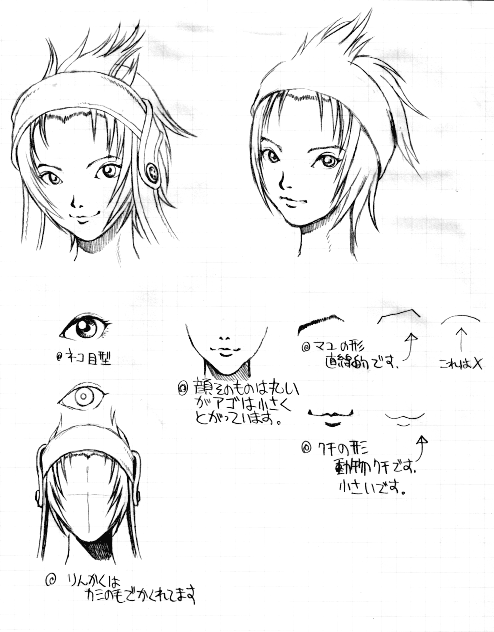 ◎ネコ目型
◎顔そのものは丸い
がアゴは小さく
とがっています。
◎マユの形
直線的です。
これはX
◎クチの形
動物クチです。
小さいです。
◎りんかくは
カミの毛でかくれてます